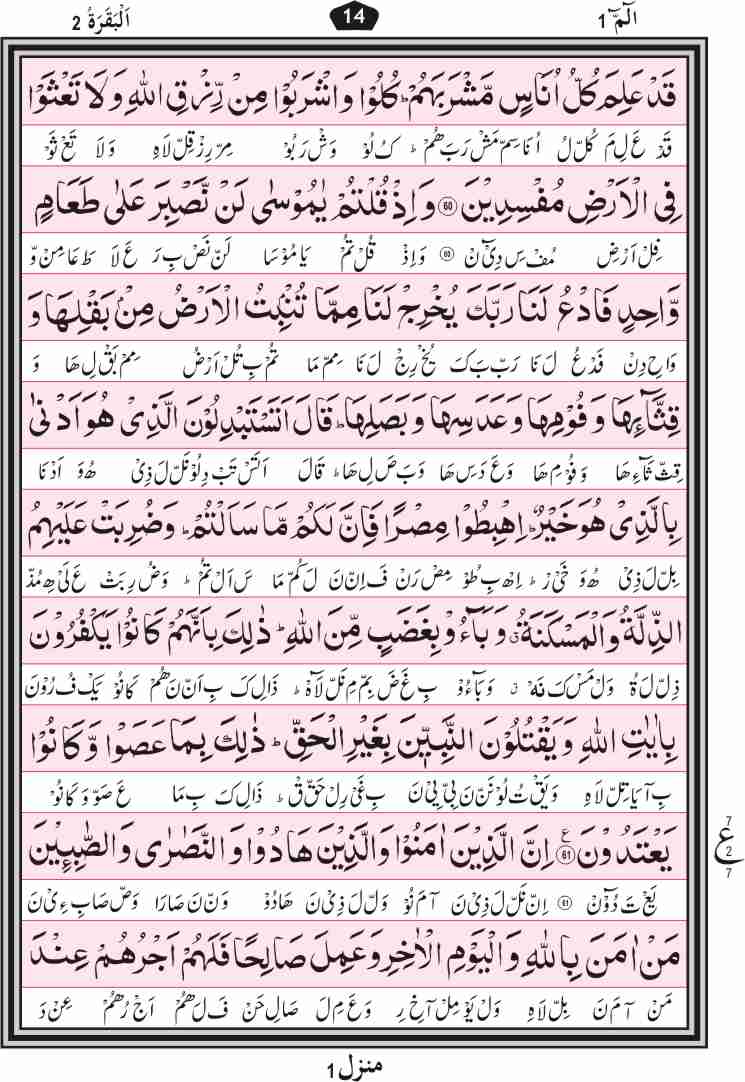 الٓمّٓ 1
14
اَلْبَقَرَةُ 2
قَدْ عَلِمَ كُلُّ اُنَاسٍ مَّشْرَبَهُمْ ؕ كُلُوْا وَاشْرَبُوْا مِنْ رِّزْقِ اللّٰهِ وَلَا تَعْثَوْا
قَدْ عَ لِ مَ كُلْ لُ اُ نَا سِمْ مَشْ رَ بَ هُمْ ؕ كُ لُوْ وَشْ رَ بُوْ مِرْ رِزْ قِلْ لَاهِ وَ لَا تَعْ ثَوْ
فِى الْاَرْضِ مُفْسِدِيْنَ ۶۰ وَاِذْ قُلْتُمْ يٰمُوْسٰى لَنْ نَّصْبِرَ عَلٰى طَعَامٍ
فِلْ اَرْضِ مُفْ سِ دِىْٓ نْ 60 وَ اِذْ قُلْ تُمْ يَا مُوْسَا لَنْ نَصْ بِ رَ عَ لَا طَ عَا مِنْ وّ
وَّاحِدٍ فَادْعُ لَنَا رَبَّكَ يُخْرِجْ لَنَا مِمَّا تُنْۢبِتُ الْاَرْضُ مِنْۢ بَقْلِهَا وَ
وَا حِ دِنْ فَدْ عُ لَ نَا رَبْ بَ كَ يُخْ رِجْ لَ نَا مِمْ مَا تُمْ بِ تُلْ اَرْضُ مِمْ بَقْ لِ هَا وَ
قِثَّآئِهَا وَفُوْمِهَا وَعَدَسِهَا وَبَصَلِهَا ؕ قَالَ اَتَسْتَبْدِلُوْنَ الَّذِىْ هُوَ اَدْنٰى
قِثْ ثَآءِ هَا وَ فُوْمِ هَا وَ عَ دَ سِ هَا وَ بَ صَ لِ هَا ؕ قَالَ اَتَسْ تَبْ دِلُوْ نَلْ لَ ذِىْ هُ وَ اَدْ نَا
بِالَّذِىْ هُوَ خَيْرٌ ؕ اِهْبِطُوْا مِصْرًا فَاِنَّ لَكُمْ مَّا سَاَلْتُمْ ؕ وَضُرِبَتْ عَلَيْهِمُ
بِلْ لَ ذِىْ هُ وَ خَىْ رْ ؕ اِهْ بِ طُوْ مِصْ رَنْ فَ اِنْ نَ لَ كُمْ مَا سَ اَلْ تُمْ ؕ وَ ضُ رِ بَتْ عَ لَىْ هِ مُذْ
الذِّلَّةُ وَالْمَسْكَنَةُ ٘ وَبَآءُوْ بِغَضَبٍ مِّنَ اللّٰهِ ؕ ذٰلِكَ بِاَنَّهُمْ كَانُوْا يَكْفُرُوْنَ
ذِلْ لَ ةُ وَلْ مَسْ كَ نَهْ وَ بَآءُوْ بِ غَ ضَ بِمْ مِ نَلْ لَاهْ ؕ ذَالِ كَ بِ اَنْ نَ هُمْ كَانُوْ يَكْ فُ رُوْنَ
بِاٰيٰتِ اللّٰهِ وَيَقْتُلُوْنَ النَّبِيّٖنَ بِغَيْرِ الْحَقِّ ؕ ذٰلِكَ بِمَا عَصَوْا وَّكَانُوْا
بِ آ يَا تِلْ لَاهِ وَ يَقْ تُ لُوْ نَنْ نَ بِىْ يِىْ نَ بِ غَىْ رِلْ حَقّ قْ ؕ ذَالِ كَ بِ مَا عَ صَوْ وَ كَانُوْ
يَعْتَدُوْنَ ۶۱ ع اِنَّ الَّذِيْنَ اٰمَنُوْا وَالَّذِيْنَ هَادُوْا وَالنَّصٰرٰى وَالصّٰبِـِٕيْنَ
ع 7 2 7
يَعْ تَ دُوْٓنْ 61 اِنْ نَلْ لَ ذِىْ نَ آ مَ نُوْ وَلْ لَ ذِىْ نَ هَادُوْ وَنْ نَ صَارَا وَصْ صَابِ ءِىْ نَ
مَنْ اٰمَنَ بِاللّٰهِ وَالْيَوْمِ الْاٰخِرِ وَعَمِلَ صَالِحًا فَلَهُمْ اَجْرُهُمْ عِنْدَ
مَنْ آ مَ نَ بِلْ لَاهِ وَلْ يَوْ مِلْ آ خِ رِ وَ عَ مِ لَ صَالِ حَنْ فَ لَ هُمْ اَجْ رُ هُمْ عِنْ دَ
منزل 1